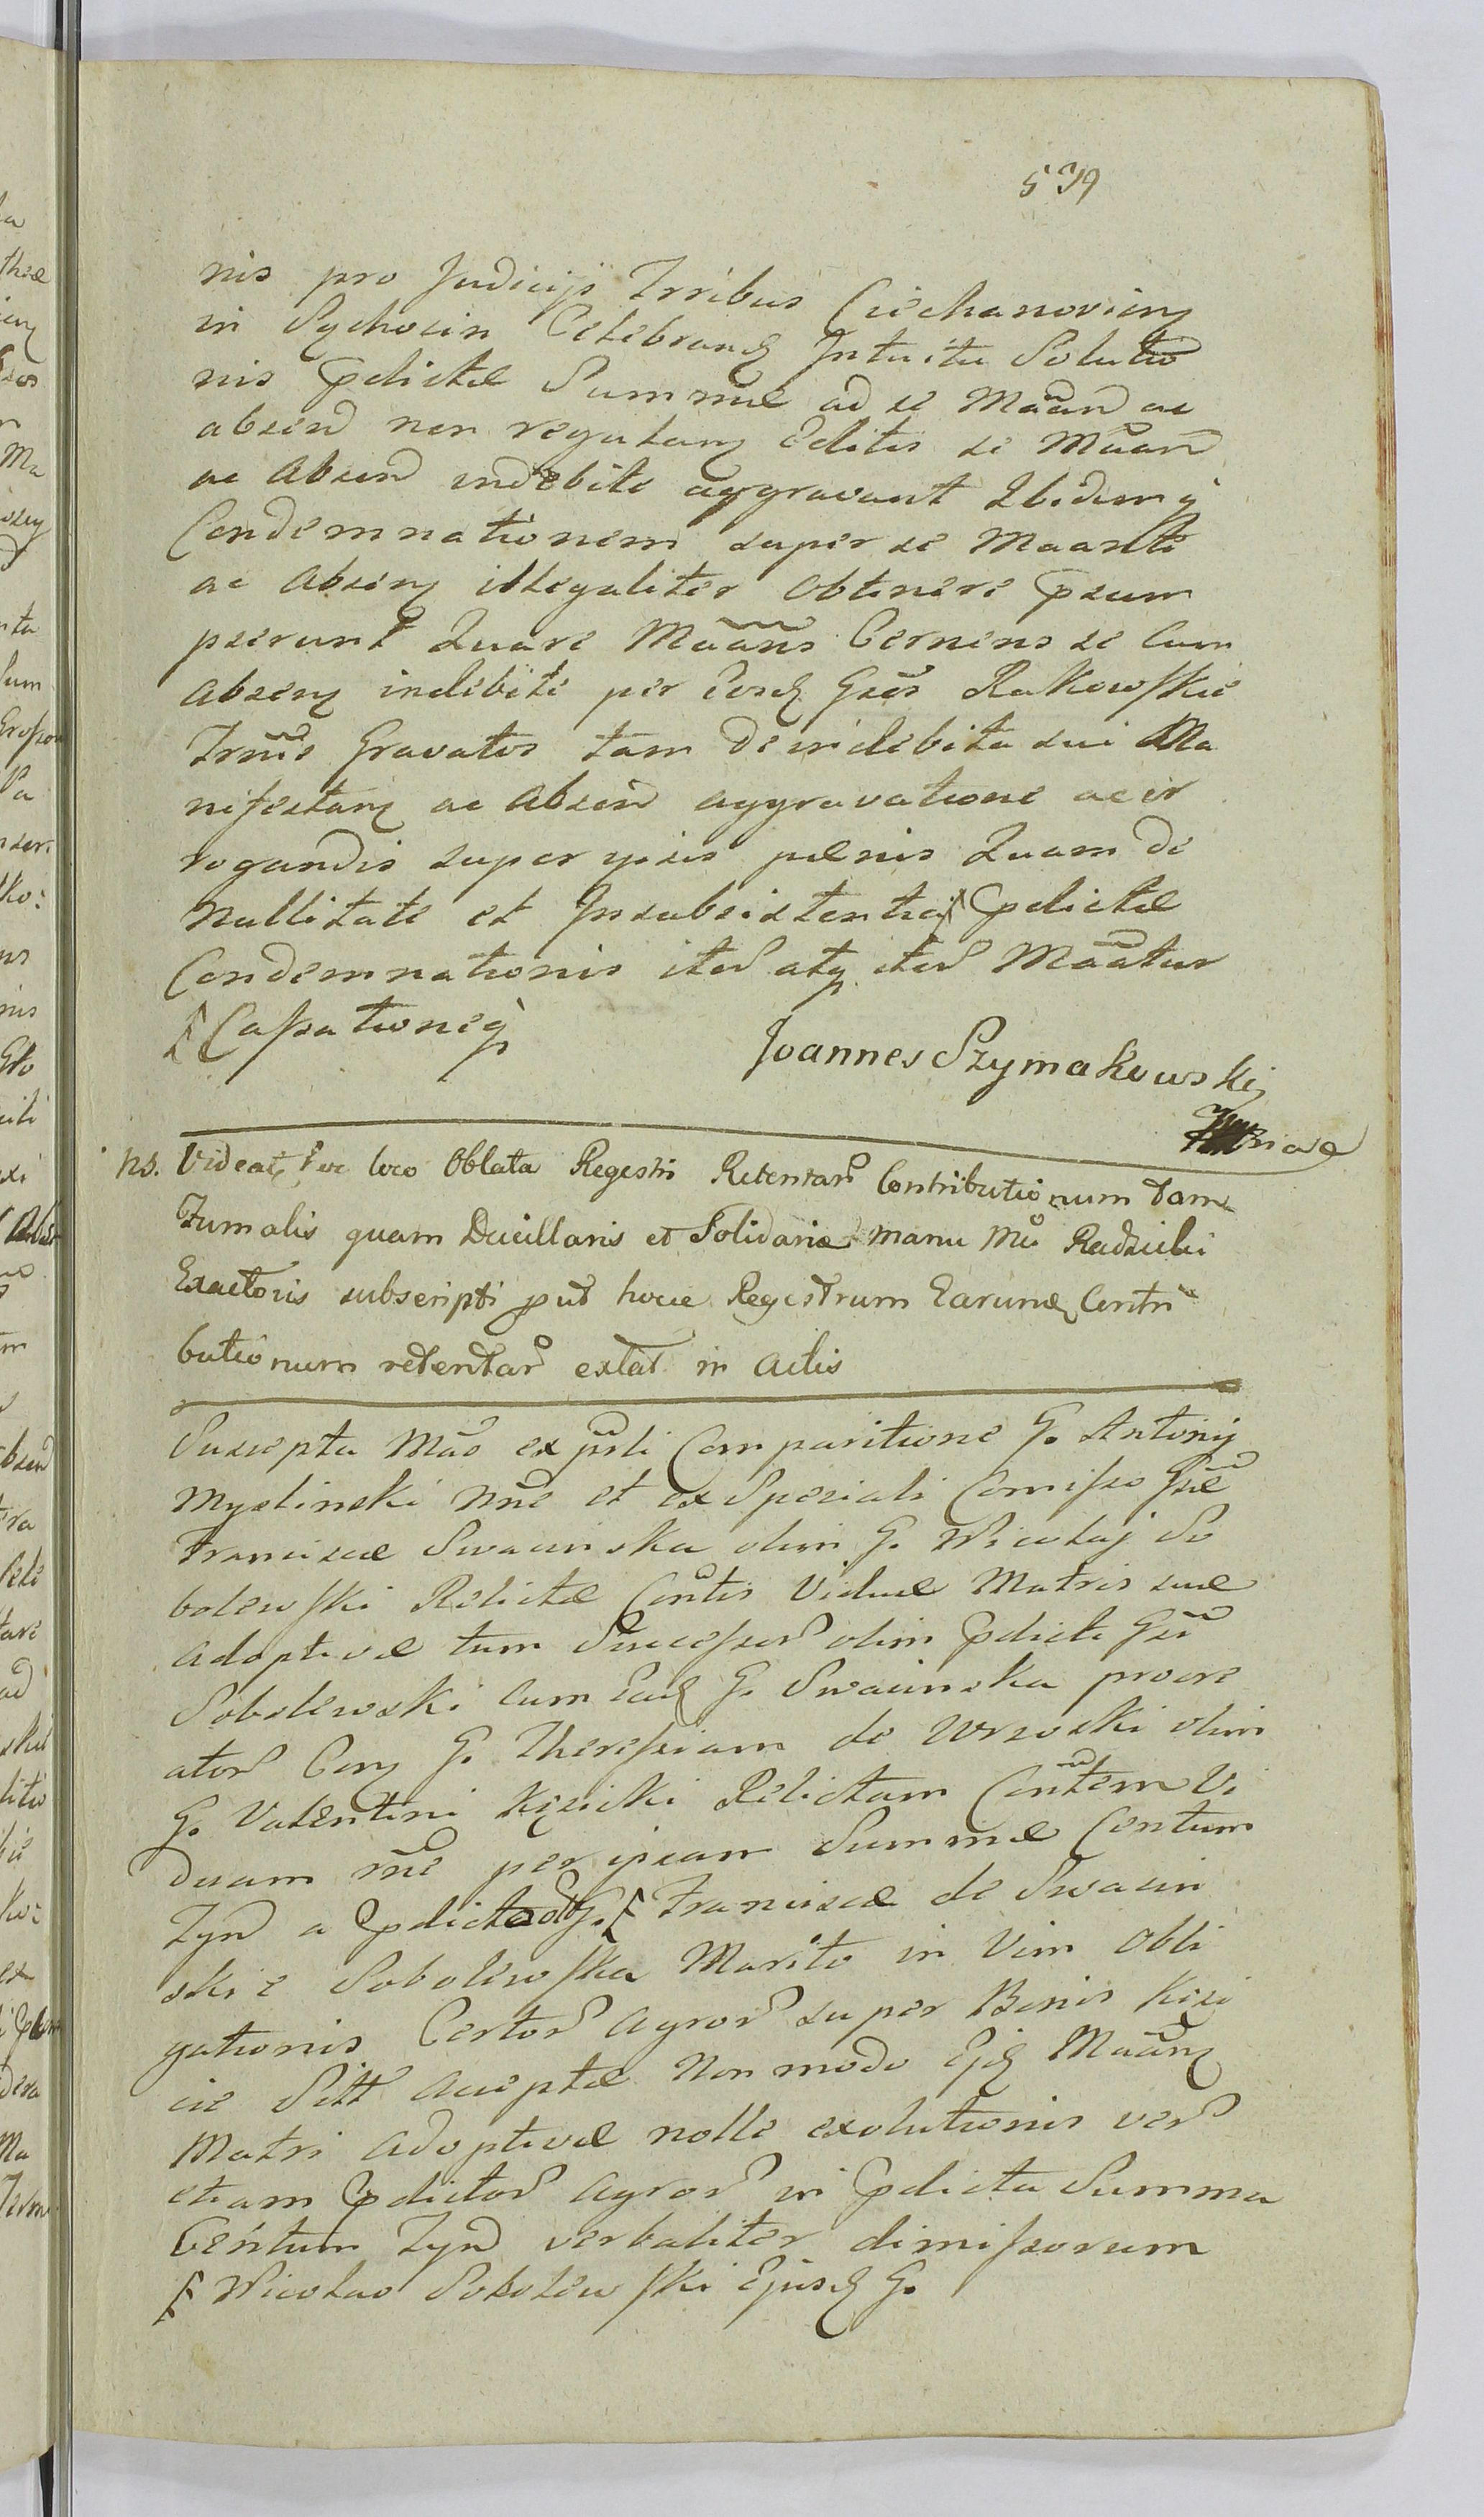 539
nis pro Judicijs Trribus Ciechanovien
in Sychocin Celebrand Intuitu Solutio
nis pdictæ Summæ ad se Maan ac
absen non regulam Editis se Maan
ac Absen indebite aggravant Ibidemq
Condemnationem super se Maante
ac Absen illegaliter obtinere psum
pserunt Quare Maans Cernens se cum
Absen indebite per Eosd Gsos Rakowskie
Trmis Gravatos tam de indebita sui Ma
nifestan ac Absen aggravatione ac ir
rogandis super ipsis pænis Quam de
Nullitate et Insubsistentia pdictæ
Condemnationis iter atq iter Maatur
Cassationeq
Joannes Szymakowski
ns. Videat hoc loco Oblata Regestri Retentar Contributionum tam
Fumalis quam Ducillaris et Solidariæ manu Mci Radzicki
Exactoris subscripti put hocce Regestrum Earund Contri
butionum retentar extat in Actis
Suscepta Mao ex pnti Comparitione G. Antonij
Myslinski nne et ex Speciali Comisso Gsæ
Franciscæ Swacinska olim G. Nicolaj So
bolewski Relictæ Contis Viduæ Matris suæ
Adoptivæ tum Successor olim pdicti Gsi
Sobolewski cum Ead G. Swacinska procre
ator Con G. Theressiam de Wrzoski olim
G. Valentini Kizicki Relictam Contem Vi
duam rne per ipsam Summæ Centum
Tyn a pdicto G. Franciscæ de Swacin
skie Sobolewska Marito in Vim Obli
gationis Certor Agror super Bonis Kizi
cie Sitt Acceptæ Non modo Ejd Maan
Matri Adoptivæ nolle exolutionis ver
etiam pdictor Agror in pdicta Summa
Centum Tyn verbaliter dimissorum
Nicolao Sobolewski Ejusd G.